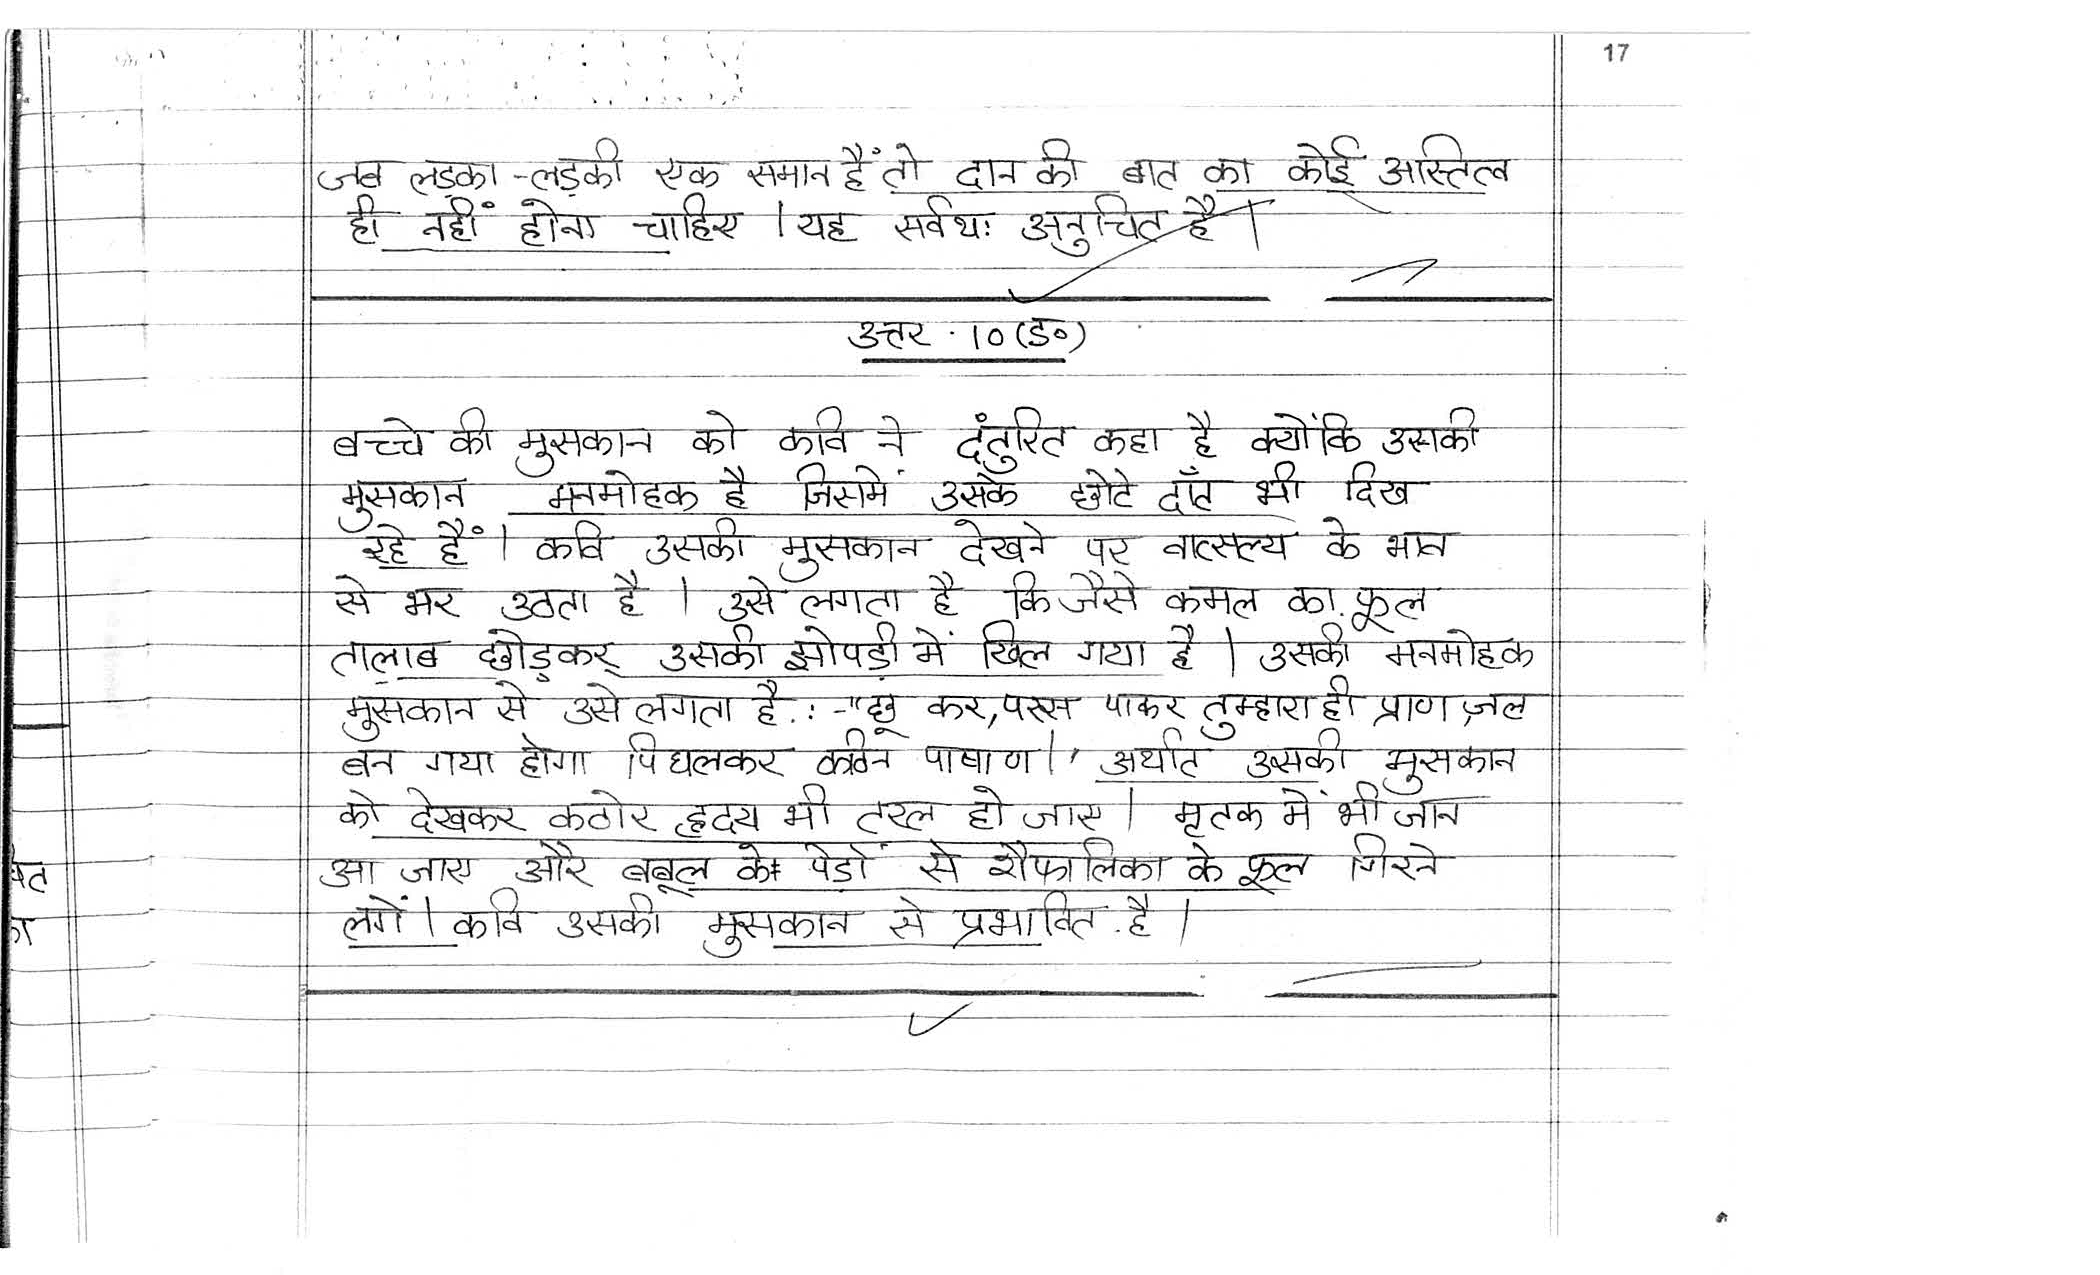 17
जब लड़का-लड़की एक समान हैं तो दान की बात का कोई अस्तित्व
ही नहीं होना चाहिए । यह सर्वथः अनुचित है ।
उत्तर · 10 (ड॰)
बच्चे की मुसकान को कवि ने दंतुरित कहा है क्योंकि उसकी
मुसकान मनमोहक है जिसमें उसके छोटे दाँत भी दिख
रहे हैं । कवि उसकी मुसकान देखने पर वात्सल्य के भाव
से भर उठता है । उसे लगता है कि जैसे कमल का फूल
तालाब छोड़कर उसकी झोपड़ी में खिल गया है । उसकी मनमोहक
मुसकान से उसे लगता है :- "छू कर, परस पाकर तुम्हारा ही प्राण, जल
बन गया होगा पिघलकर कठिन पाषाण ।' अर्थात उसकी मुसकान
को देखकर कठोर हृदय भी तरल हो जाए । मृतक में भी जान
आ जाए और बबूल के पेड़ों से शैफालिका के फूल गिरने
लगें । कवि उसकी मुसकान से प्रभावित है ।